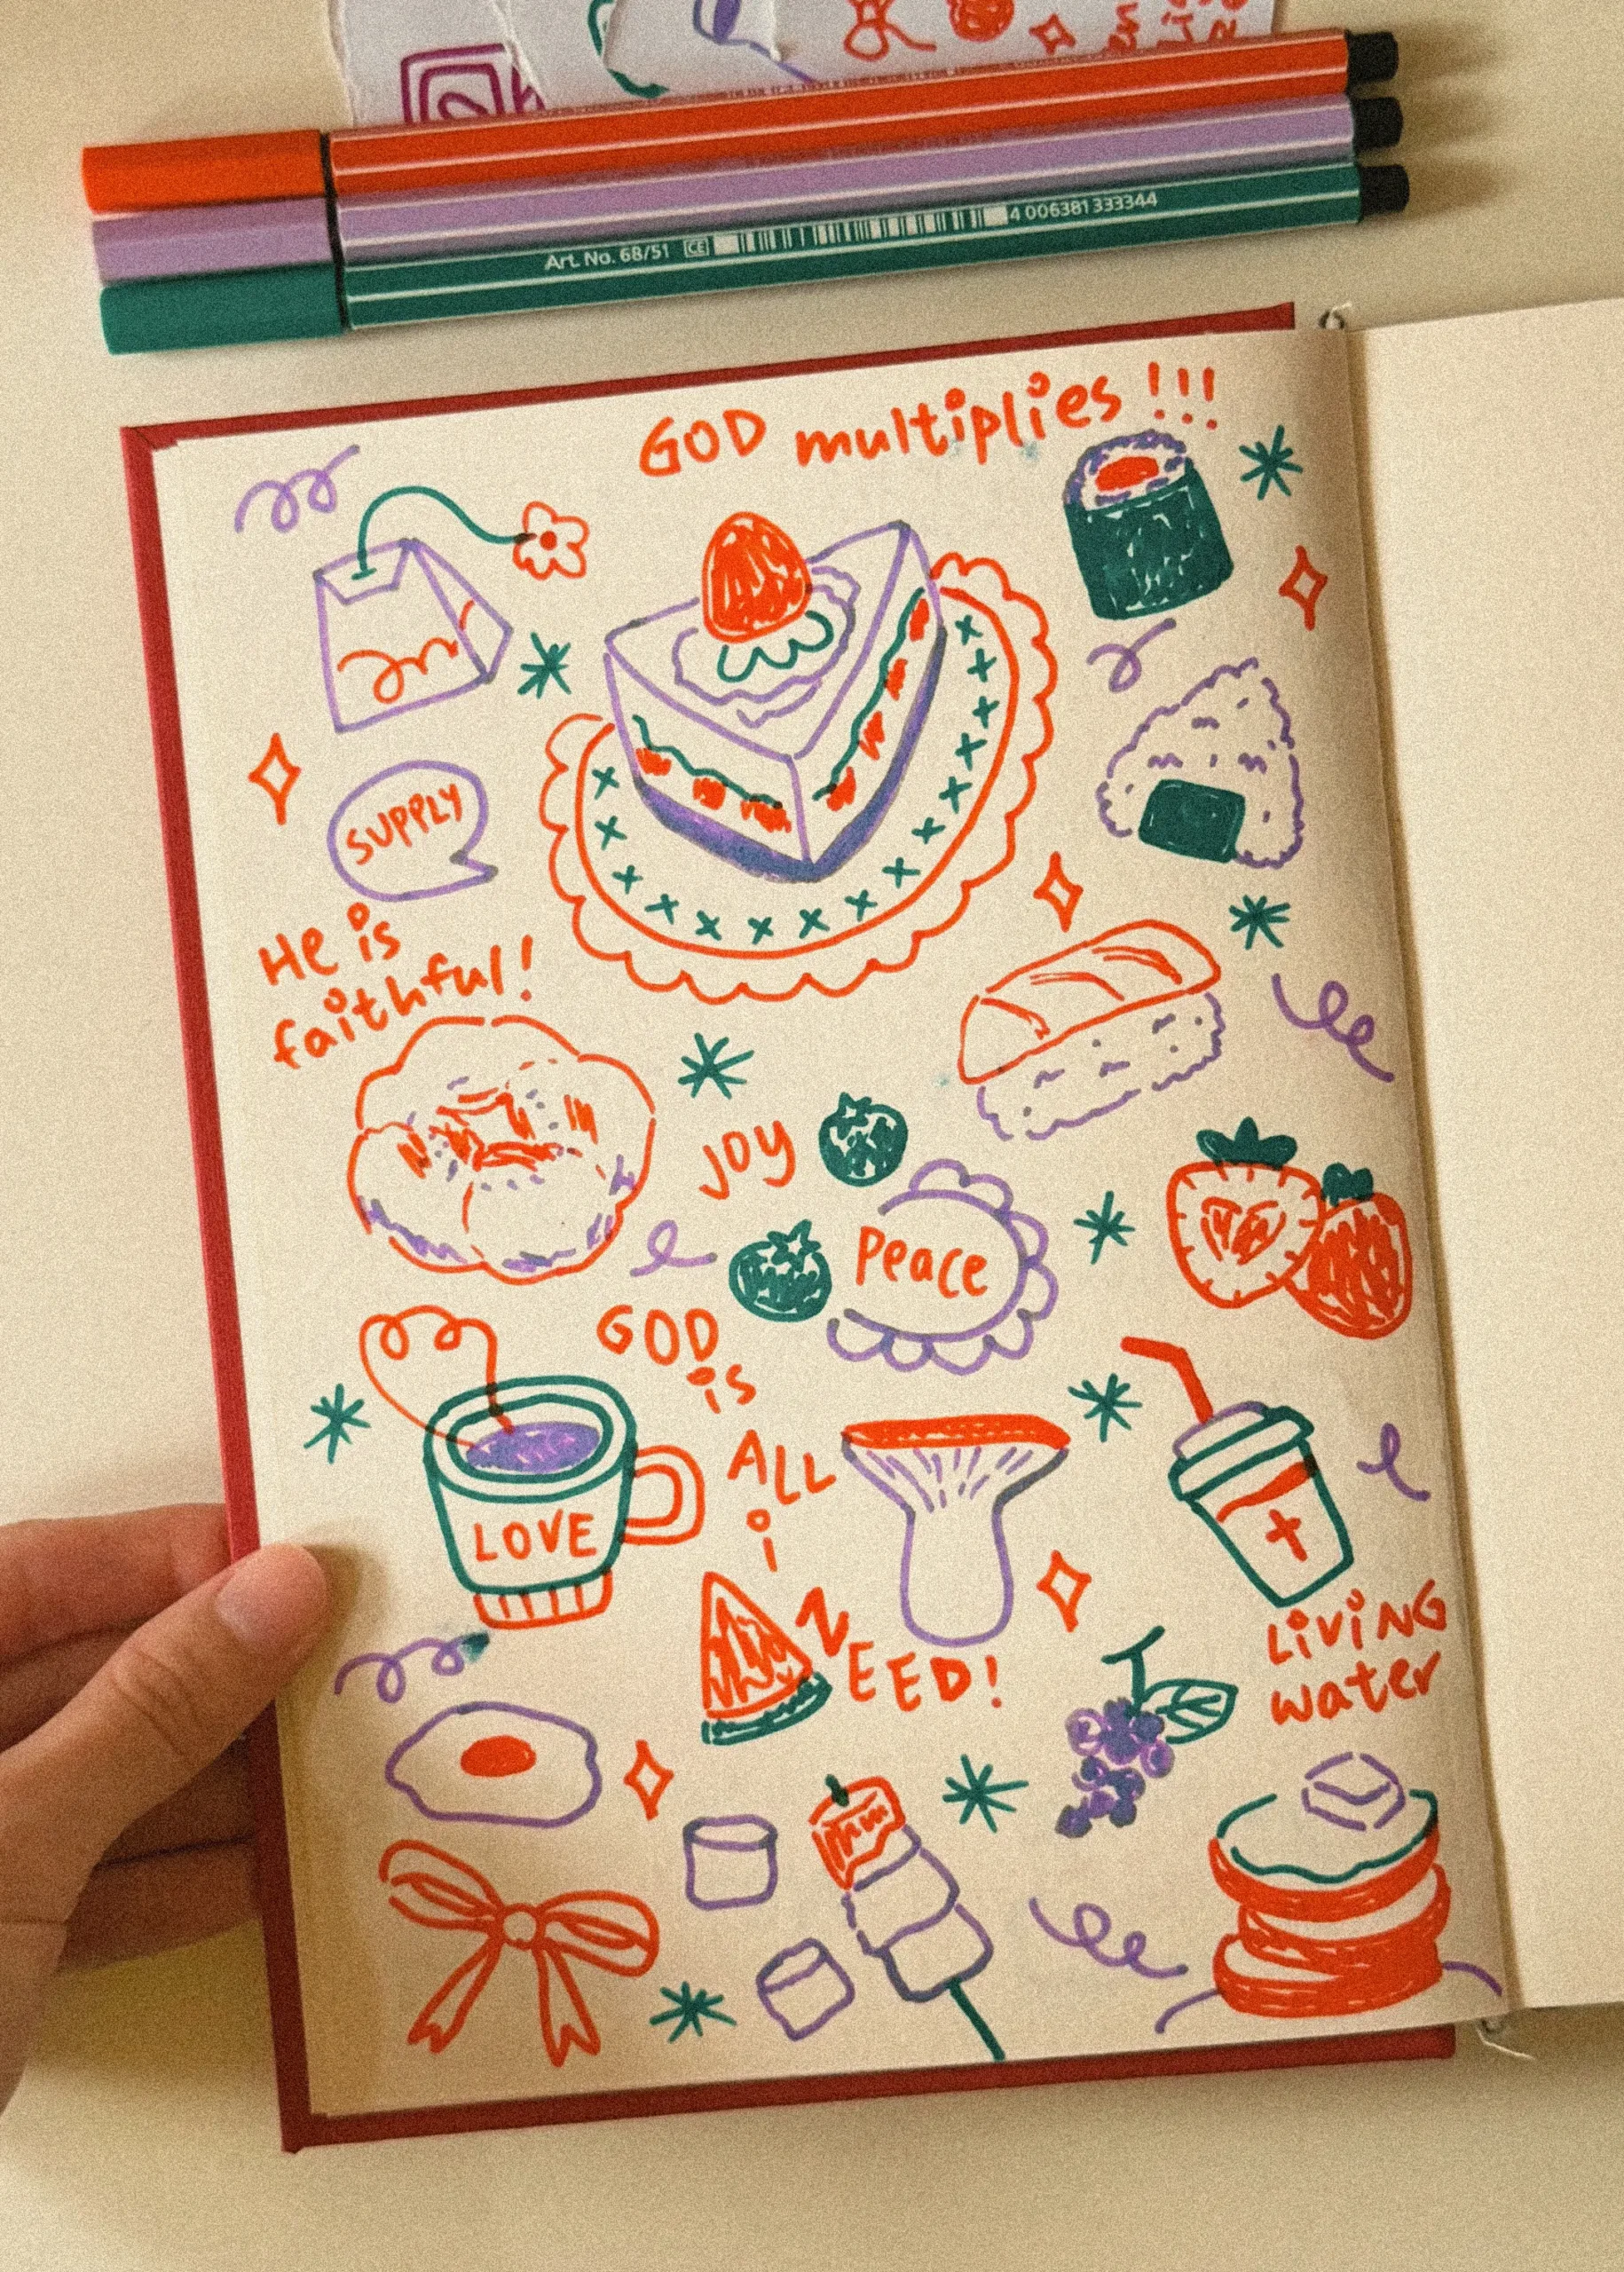 Art. No. 68/51 CE 4 006381 333344
GOD multiplies!!!
SUPPLY
He is
faithful!
JOY
Peace
GOD
is
ALL
i
NEED!
LOVE
LiViNG
water